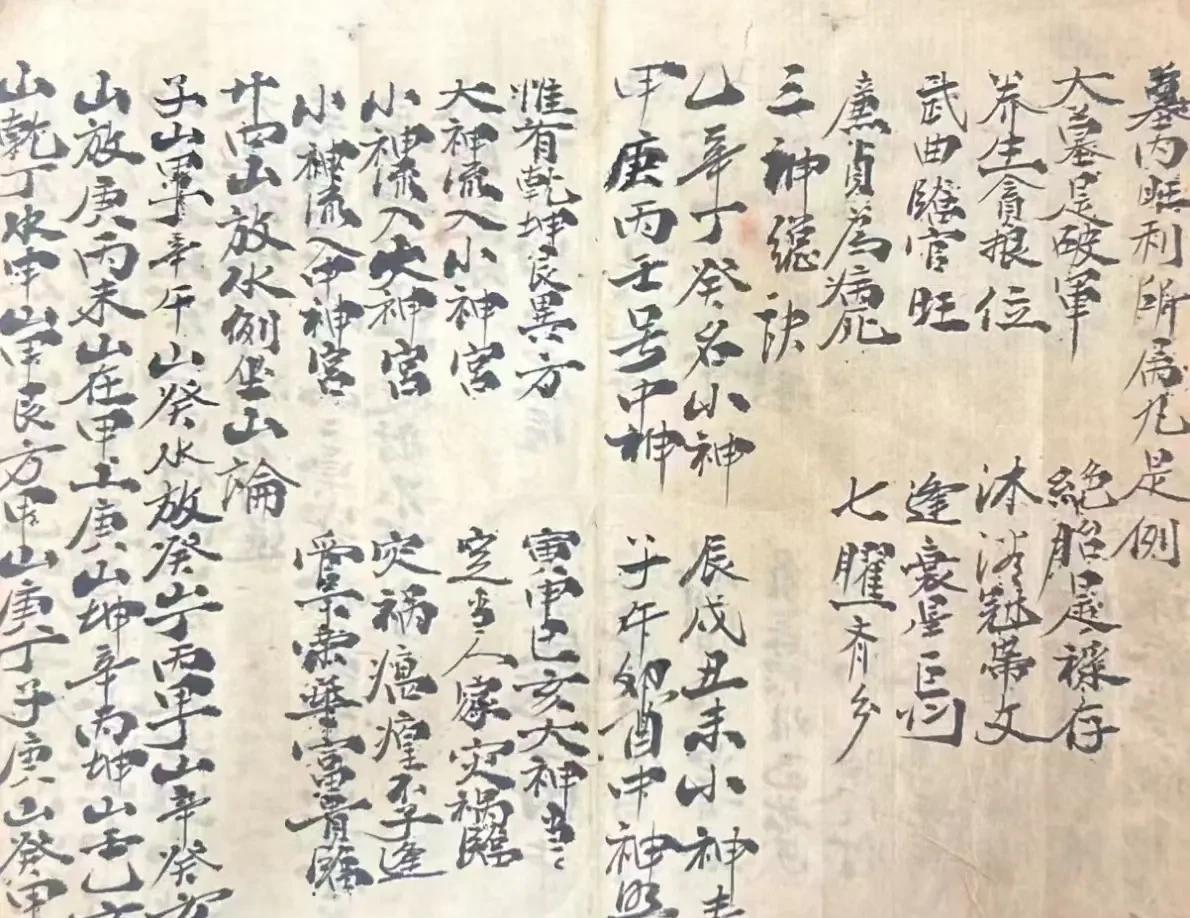 墓丙旺利所為九是例
大墓是破軍 絕胎是祿存
养生貪狼位 沐浴冠帶文
武曲臨官旺 逢衰是巨门
廉貞為病死 七曜一齐乡
三神總訣
乙辛丁癸名小神 辰戌丑未小神
甲庚丙壬号中神 子午卯酉中神
惟有乾坤艮巽方 寅申巳亥大神当
大神流入小神宮 定出人家災禍臨
小神流入大神宮 灾禍瘟瘟不逢
小神流入中神宮 榮華富貴臨
廿四山放水例坐山論
子山甲辛午山癸水放癸山丁丙 山辛癸亥
山放庚丙未山在甲上庚山坤辛丙坤山壬乙
山乾丁水申山甲艮方 山庚丁子庚山癸甲